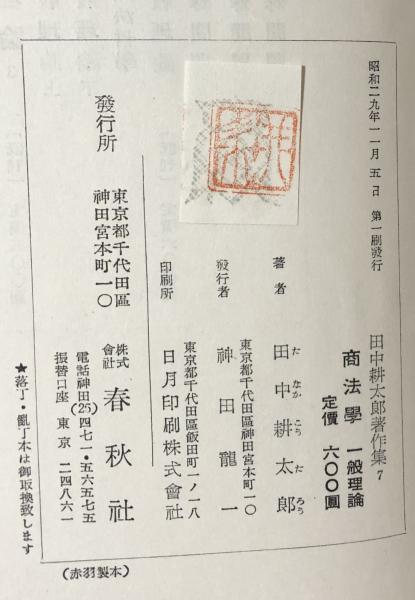 昭和二九年一一月五日 第一刷發行
田中耕太郎著作集 7
商法學 一般理論
定價 六〇〇圓
著者 田中耕太郎
たなかこうたろう
東京都千代田區神田宮本町一〇
發行者 神田龍一
東京都千代田區飯田町一ノ一八
印刷所 日月印刷株式會社
發行所
東京都千代田區
神田宮本町一〇
株式會社 春秋社
電話神田(25)四七一・五六五七五
振替口座 東京 二四八六一
★落丁・亂丁本は御取換致します
(赤羽製本)